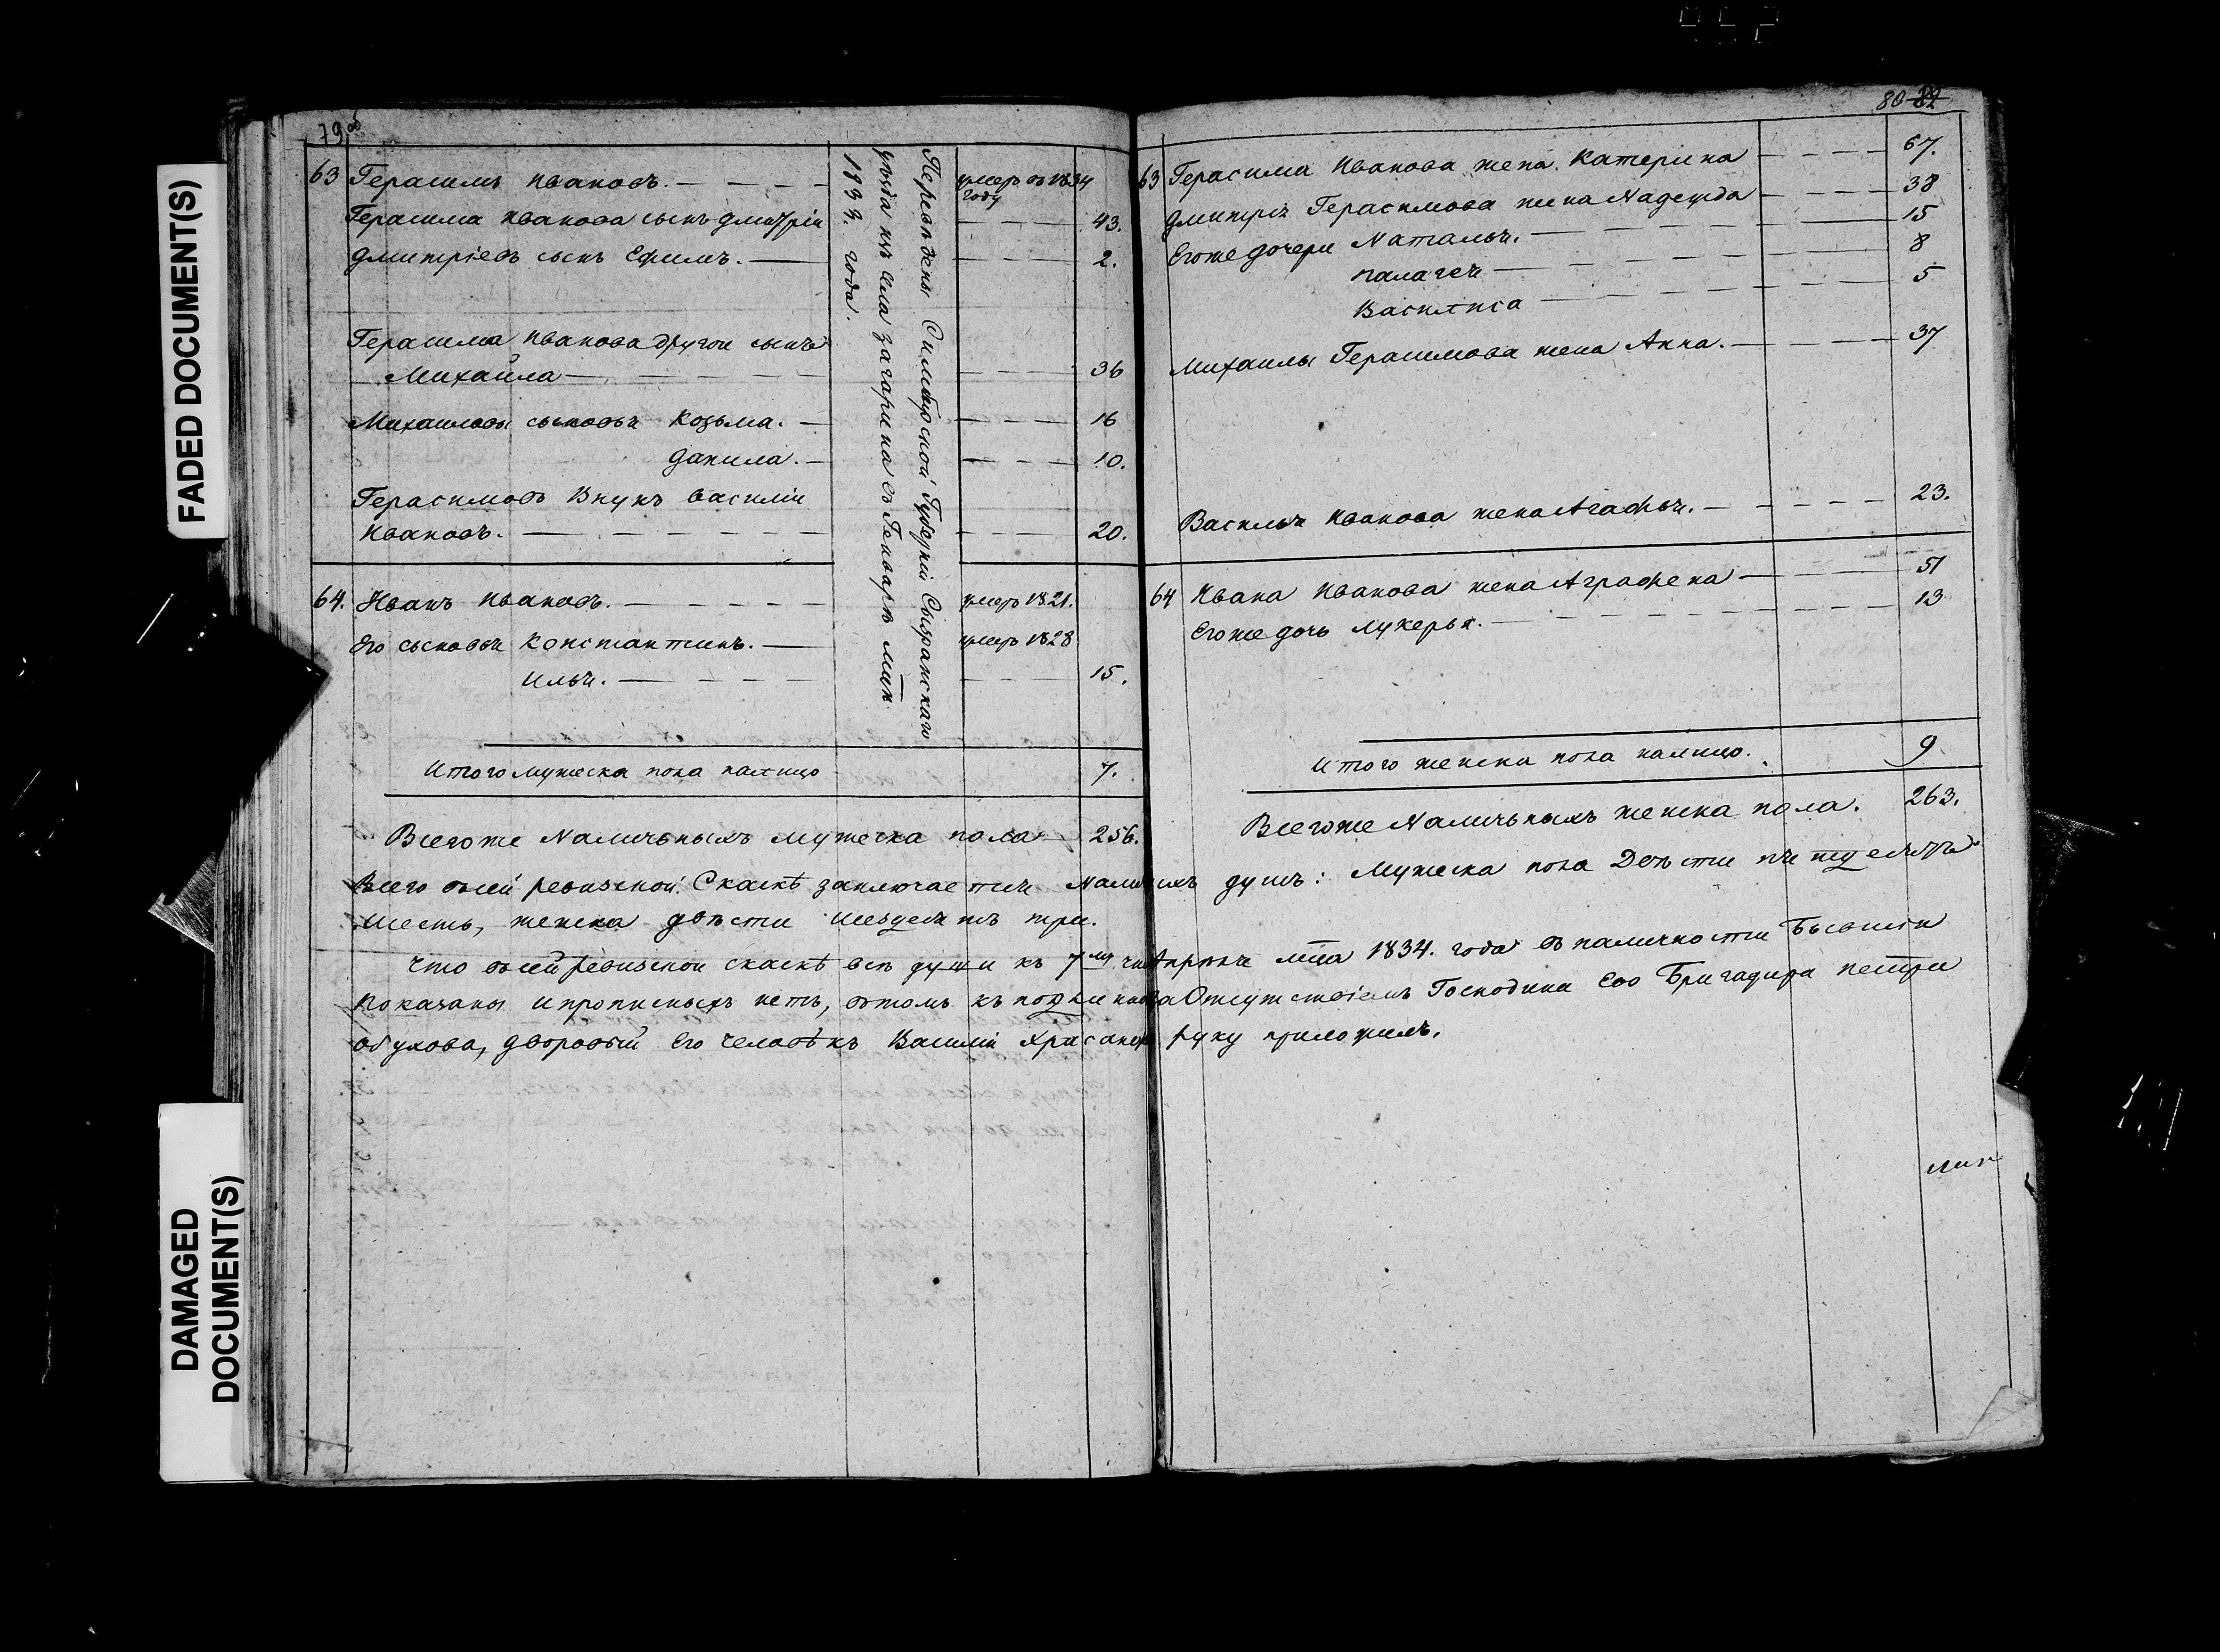 FADED DOCUMENT(S)
DAMAGED
DOCUMENT(S)
79 об
63 Герасимъ Ивановъ. умеръ въ 1834
году
Герасима Иванова сынъ Дмитрiй 43.
Дмитрiевъ сынъ Ефимъ. 2.
Герасима Иванова другой сынъ
Михайла 36
Михайловы сыновья Козьма. 16
Данила. 10.
Герасимовъ внукъ Василiй
Ивановъ. 20.
Переведены Симбирской Губернiи Сызранскаго
уѣзда изъ села Загарина въ Генварѣ мцѣ
1833. года.
64. Иванъ Ивановъ. умеръ 1821.
Его сыновья Константинъ. умеръ 1828
Илья. 15.
Итого мужеска пола налицо 7.
Всегоже Наличныхъ мужеска пола 256.
80 82
63 Герасима Иванова жена Катерина 67.
Дмитрiя Герасимова жена Надежда 38
Егоже дочери Наталья. 15
Палагея 8
Василиса 5
Михаилы Герасимова жена Анна. 37
Василья Иванова жена Агафья. 23.
64 Ивана Иванова жена Аграфена 51
Егоже дочь Лукерья. 13
Итого женска пола налицо. 9
Всегоже Наличьныхъ женска пола. 263.
Всего всей ревизской Скаскѣ заключается душъ: мужеска пола Двѣсти пятдесятъ
шесть, женска двѣсти шездесятъ три.
Что всей ревизской скаскѣ всѣ души къ 7му Апрѣля мца 1834. года въ наличности Бывшiя
показаны и прописныхъ нетъ, вътомъ къ Отсутствiемъ Господина Его Бригадира Петра
Обухова, дворовый Его человѣкъ Василiй руку приложилъ.